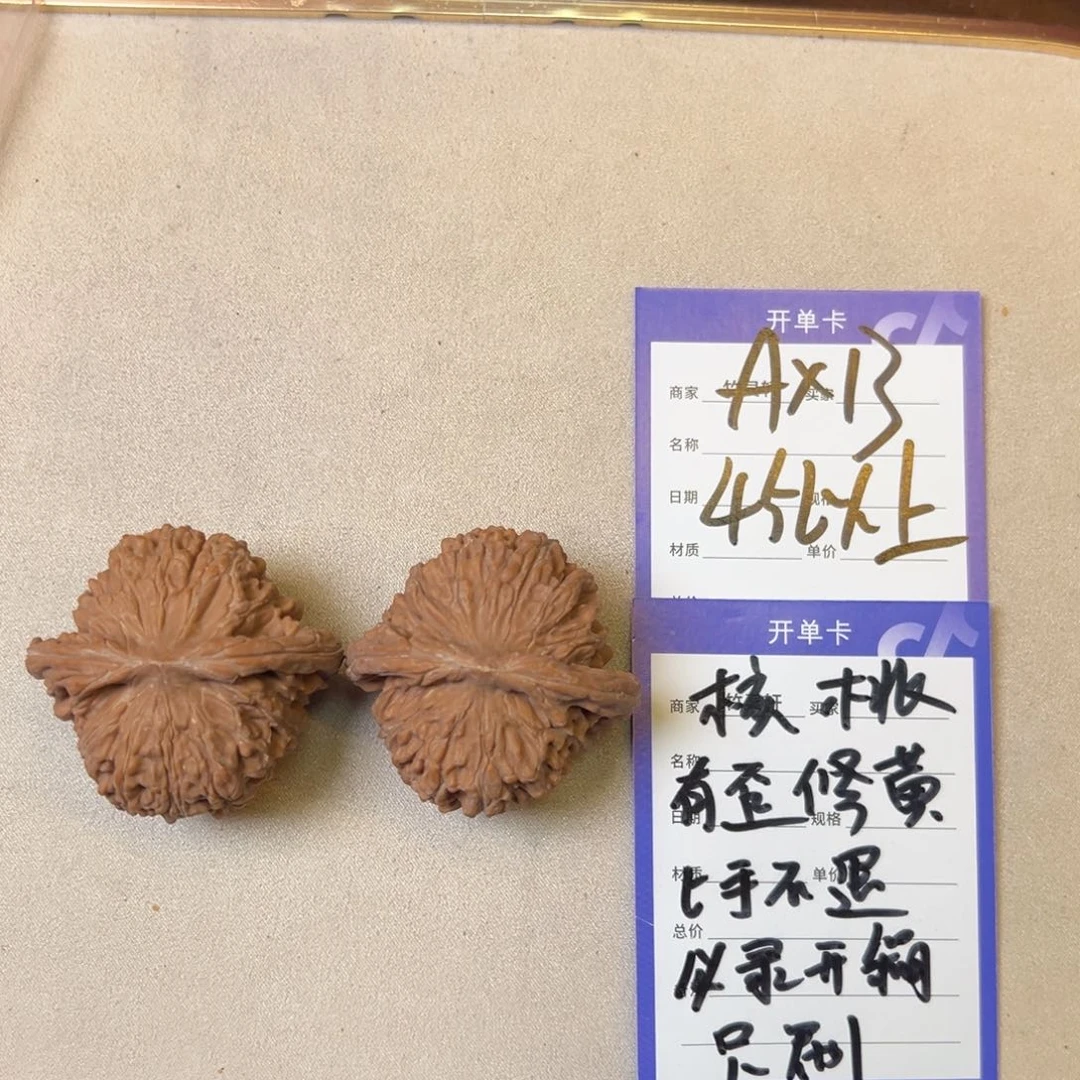 开单卡
AX13
商家 买家
名称
45以上
日期 规格
材质 单价
开单卡
核桃
商家 买家
名称
有歪修黄
日期 规格
上手不退
材质 单价
总价
必录开箱
只刷